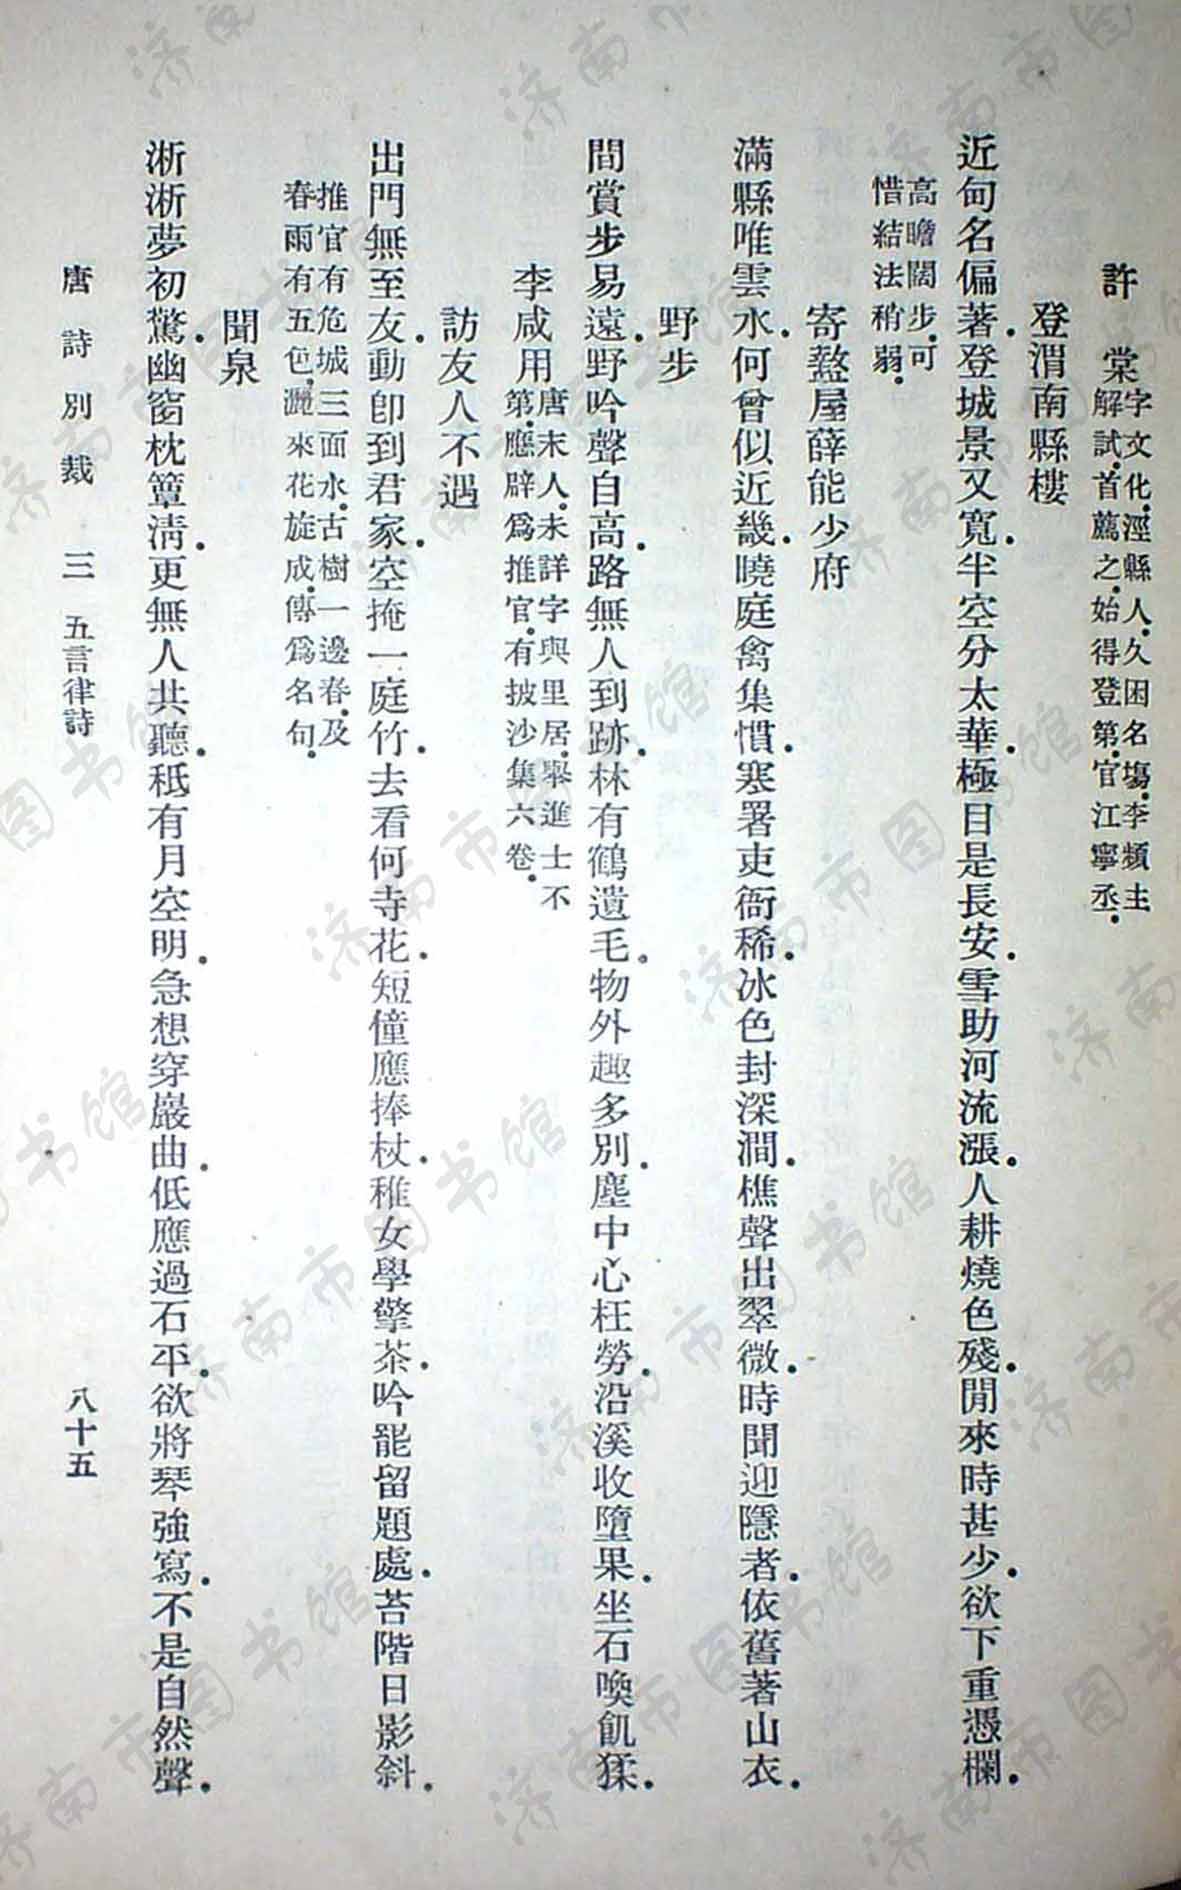 許棠字文化.涇縣人.久困名場.李頻主
解試.首薦之.始得登第.官江寧丞.
登渭南縣樓
近甸名偏著.登城景又寬.半空分太華.極目是長安.雪助河流漲.人耕燒色殘.閒來時甚少.欲下重憑欄.
高瞻闊步.可
惜結法稍弱.
寄盩厔薛能少府
滿縣唯雲水.何曾似近畿.曉庭禽集慣.寒署吏衙稀.冰色封深澗.樵聲出翠微.時聞迎隱者.依舊著山衣.
野步
閒賞步易遠.野吟聲自高.路無人到跡.林有鶴遺毛.物外趣多別.塵中心枉勞.沿溪收墮果.坐石喚飢猱.
李咸用唐末人.未詳字與里居.舉進士不
第.應辟爲推官.有披沙集六卷.
訪友人不遇
出門無至友.動卽到君家.空掩一庭竹.去看何寺花.短僮應捧杖.稚女學擎茶.吟罷留題處.苔階日影斜.
推官有危城三面水.古樹一邊春.及
春雨有五色.灑來花旋成.傳爲名句.
聞泉
淅淅夢初驚.幽窗枕簟清.更無人共聽.秖有月空明.急想穿巖曲.低應過石平.欲將琴強寫.不是自然聲.
唐詩別裁 三 五言律詩 八十五